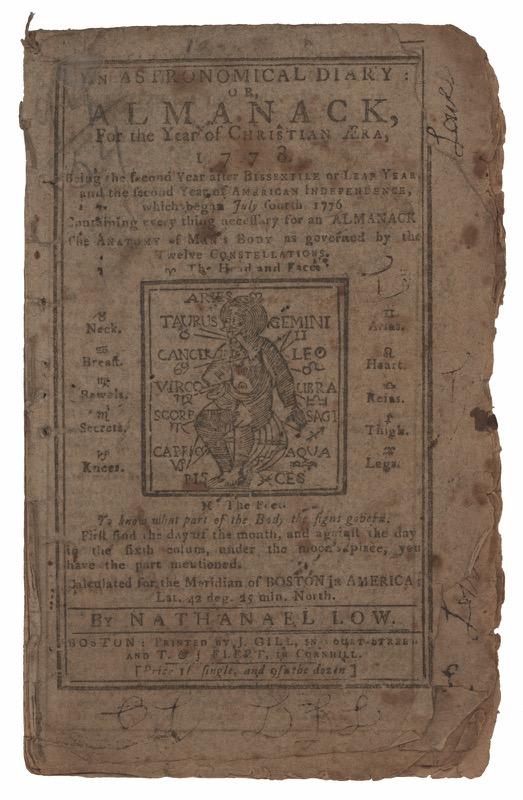 AN ASTRONOMICAL DIARY:
OR,
ALMANACK,
For the Year of CHRISTIAN ÆRA,
1778.
Being the second Year after BISSEXTILE or LEAP YEAR,
and the second Year of AMERICAN INDEPENDENCE,
which began July fourth, 1776
Containing every thing necessary for an ALMANACK
The ANATOMY of MAN's BODY as governed by the
Twelve CONSTELLATIONS.
♈ The Head and Face
ARIES
TAURUS GEMINI
♉ ♊
CANCER LEO
♋ ♌
VIRGO LIBRA
♍ ♎
SCORP SAGI
♏ ♐
CAPRIC AQUA
♑ ♒
PIS CES
♉ Neck.
♋ Breast.
♍ Bowels.
♏ Secrets.
♑ Knees.
♊ Arms.
♌ Heart.
♎ Reins.
♐ Thighs.
♒ Legs.
♓ The Feet.
To know what part of the Body the signs govern.
First find the day of the month, and against the day
in the sixth colum, under the moon's place, you
have the part mentioned.
Calculated for the Meridian of BOSTON in AMERICA:
Lat. 42 deg. 25 min. North.
By NATHANAEL LOW.
BOSTON: PRINTED BY J. GILL, IN COURT-STREET
AND T. & J FLEET, in CORNHILL.
[Price 1s single, and 9s the dozen]
Low